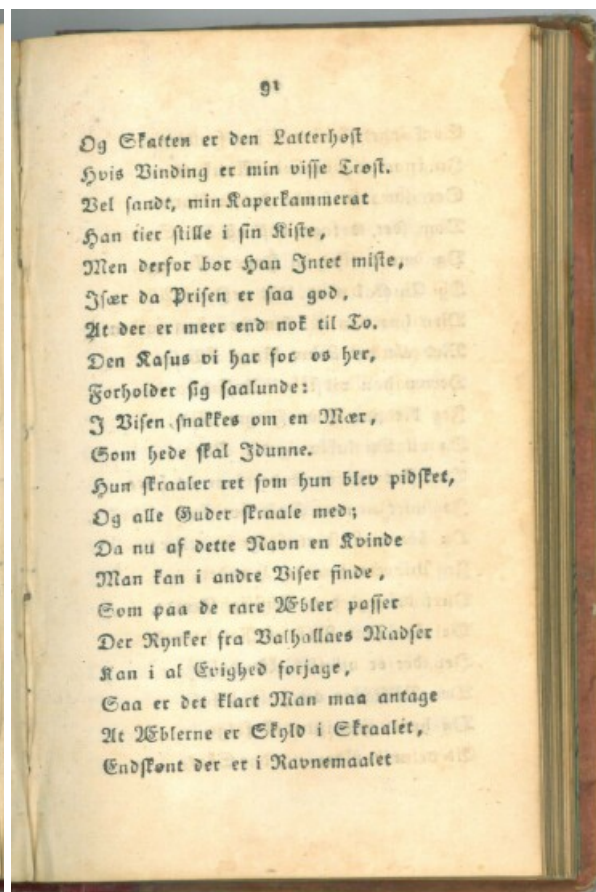 91
Og Skatten er den Latterhøst
Hvis Vinding er min visse Trøst.
Vel sandt, min Kaperkammerat
Han tier stille i sin Kiste,
Men derfor bør Han Intet miste,
Især da Prisen er saa god,
At der er meer end nok til To.
Den Kasus vi har for os her,
Forholder sig saalunde:
I Visen snakkes om en Mær,
Som hede skal Idunne.
Hun skraaler ret som hun blev pidsket,
Og alle Guder skraale med;
Da nu af dette Navn en Kvinde
Man kan i andre Viser finde,
Som paa de rare Æbler passer
Der Rynker fra Valhallaes Madser
Kan i al Evighed forjage,
Saa er det klart Man maa antage
At Æblerne er Skyld i Skraalet,
Endskønt der er i Ravnemaalet